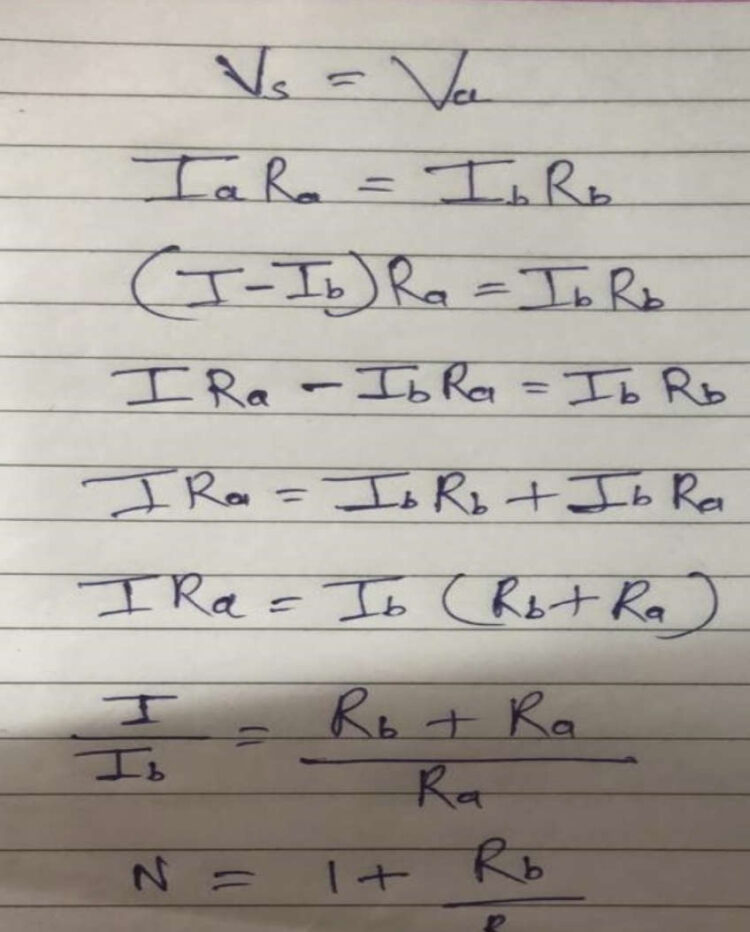 Vs = Va
IaRa = IbRb
(I-Ib)Ra = IbRb
IRa - IbRa = IbRb
IRa = IbRb + IbRa
IRa = Ib (Rb+Ra)
I/Ib = (Rb + Ra)/Ra
N = 1+ Rb/